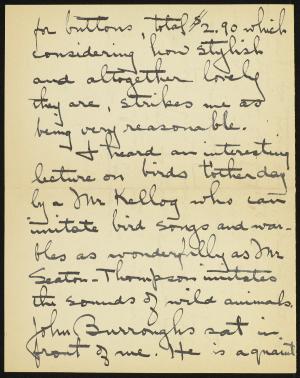 for buttons, total $2.90 which
considering how stylish
and altogether lovely
they are, strikes me as
being very reasonable.
I heard an interesting
lecture on birds t'other day
by a Mr Kellog who can
imitate bird songs and war-
bles as wonderfully as Mr
Seaton-Thompson imitates
the sounds of wild animals.
John Burroughs sat in
front of me. He is a quaint